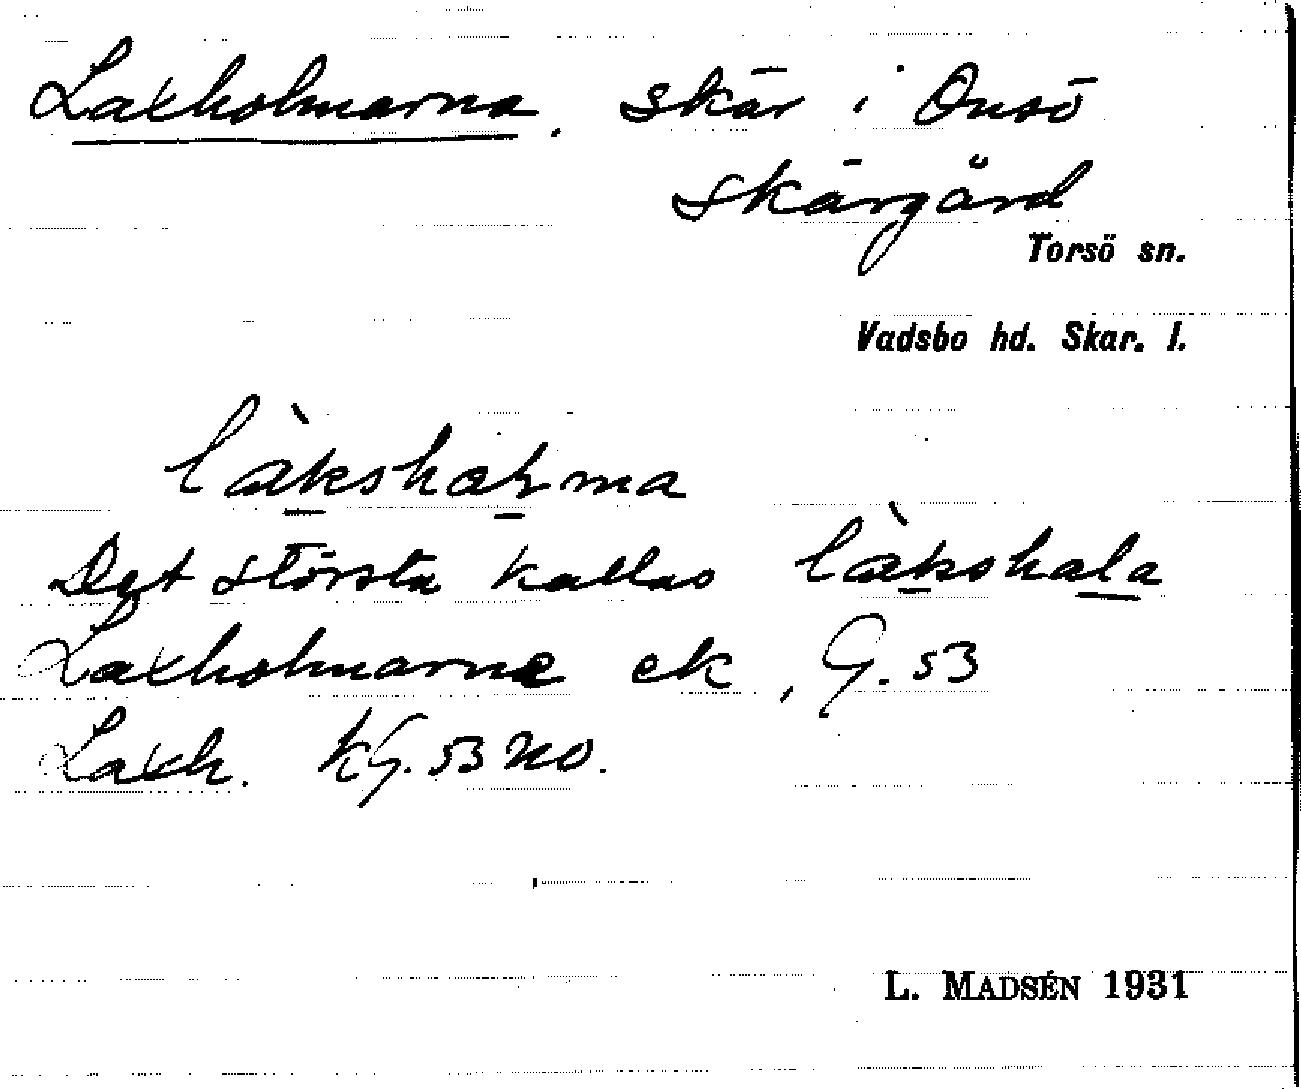 Laxholmarna, skär i Onsö
skärgård
Torsö sn.
Vadsbo hd. Skar. l.
Det största kallas làkshala
Laxholmarne ek, G. 53
Laxh. KG. 53 NO.
L. MADSÉN 1931